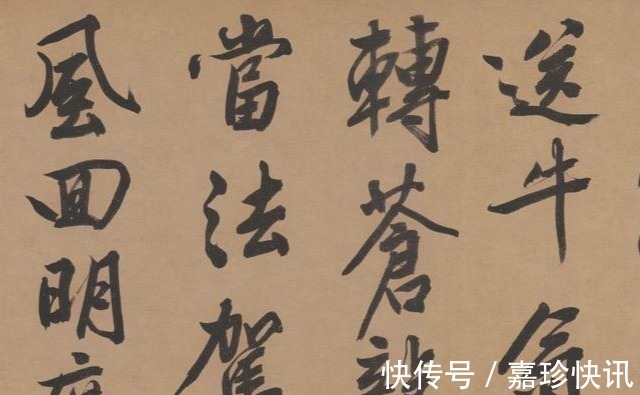 送牛
轉蒼
當法駕
風回明
快传号 / 嘉珍快讯